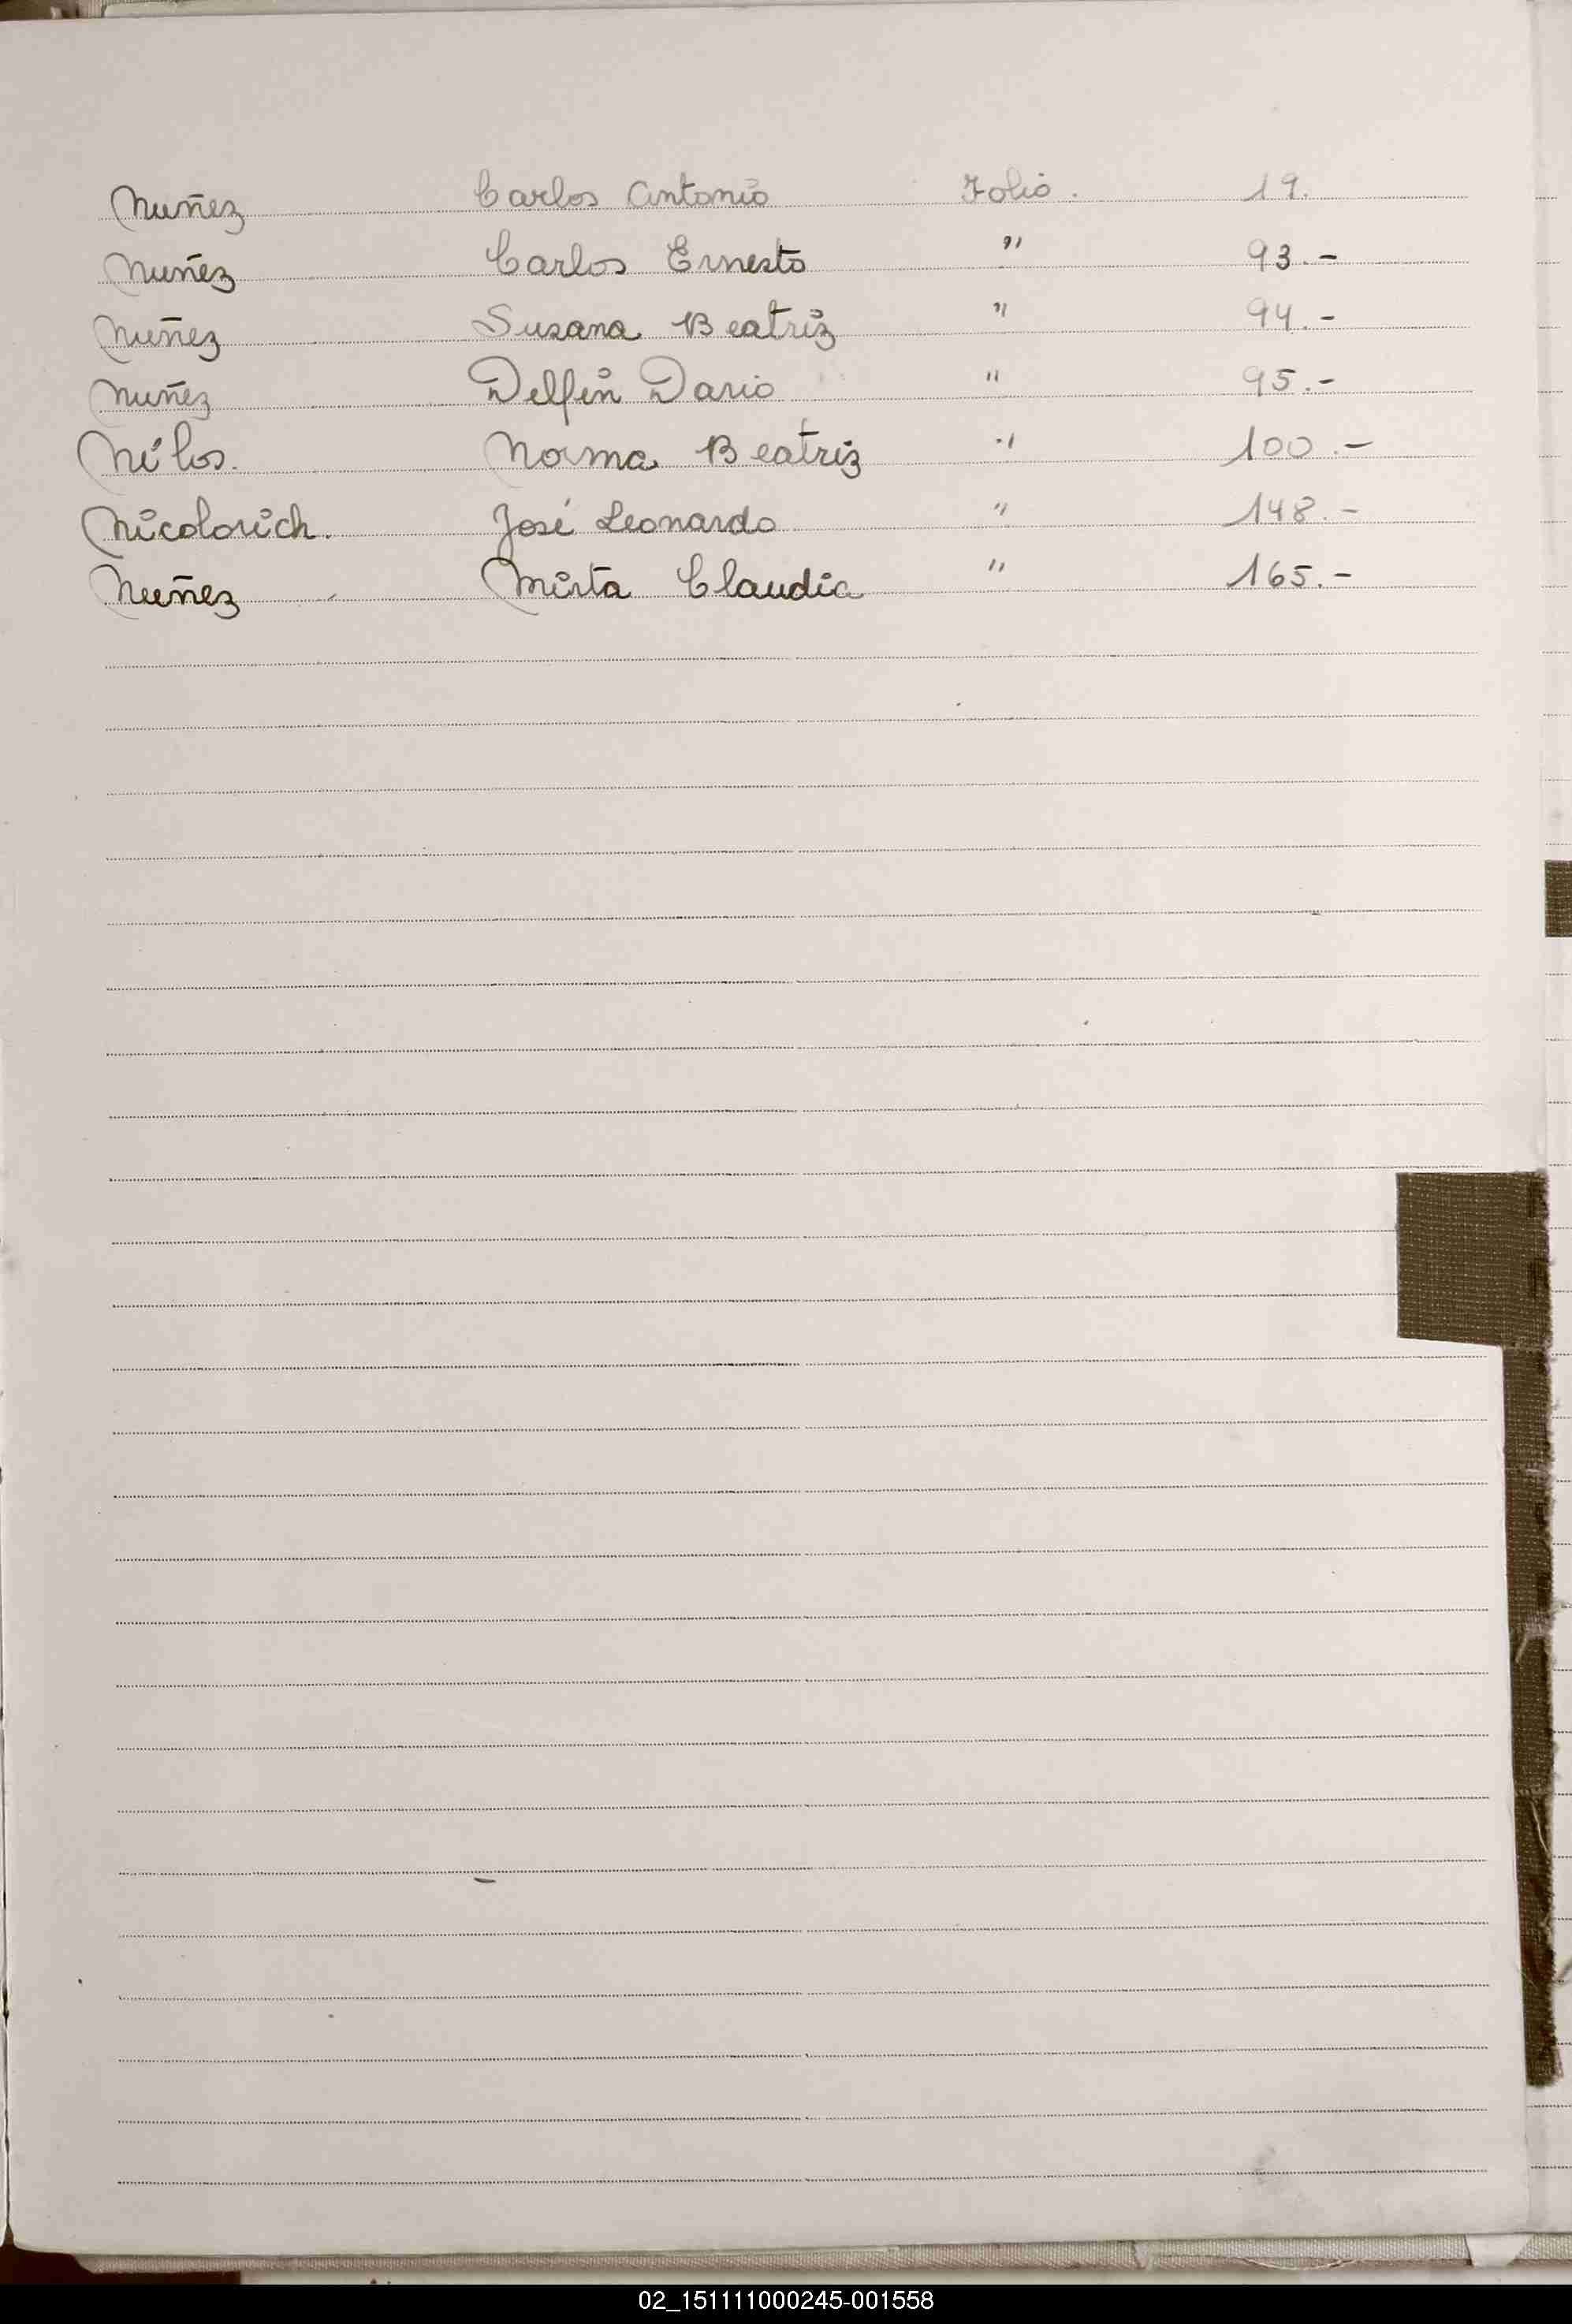 Nuñez Carlos Antonio Folio. 19.
Nuñez Carlos Ernesto " 93.-
Nuñez Susana Beatriz " 94.-
Nuñez Delfin Dario " 95.-
Nilos. Norma Beatriz " 100.-
Nicolovich. José Leonardo " 148.-
Nuñez Mirta Claudia " 165.-
02_151111000245-001558